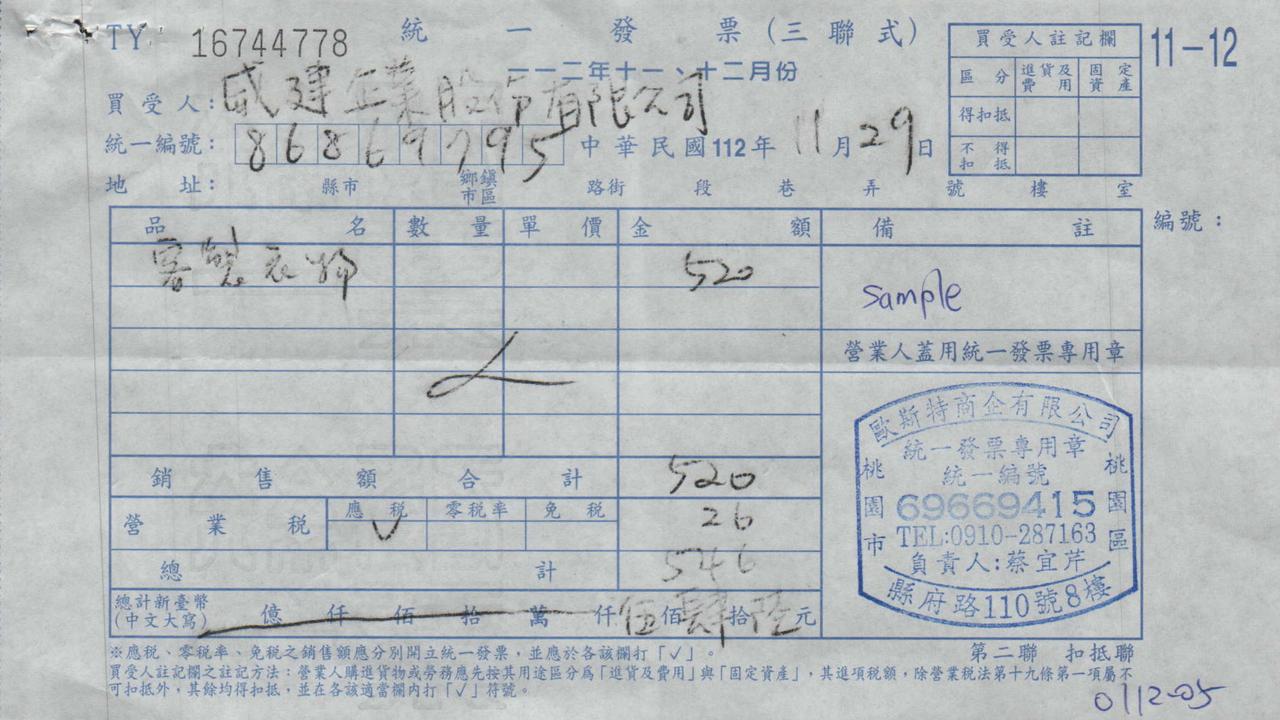 TY 16744778 統一發票(三聯式)
一一二年十一、十二月份
11-12
買受人註記欄
區分 進貨及費用 固定資產
得扣抵
不得扣抵
買受人:威建企業股份有限公司
統一編號: 86869795 中華民國112年11月29日
地址: 縣市 鄉鎮市區 路街 段 巷 弄 號 樓 室
品名 數量 單價 金額 備註 編號:
客製衣物 520
sample
營業人蓋用統一發票專用章
銷售額合計 520
營業稅 應稅 零稅率 免稅 26
V
總計 546
總計新臺幣
(中文大寫) 億 仟 佰 拾 萬 仟 伍佰肆拾陸元
歐斯特商企有限公司
統一發票專用章
統一編號
69669415
TEL:0910-287163
負責人:蔡宜芹
桃園市 桃園區
縣府路110號8樓
※應稅、零稅率、免稅之銷售額應分別開立統一發票,並應於各該欄打「✓」。
第二聯 扣抵聯
買受人註記欄之註記方法:營業人購進貨物或勞務應先按其用途區分為「進貨及費用」與「固定資產」,其進項稅額,除營業稅法第十九條第一項屬不
可扣抵外,其餘均得扣抵,並在各該適當欄內打「✓」符號。
0112-05